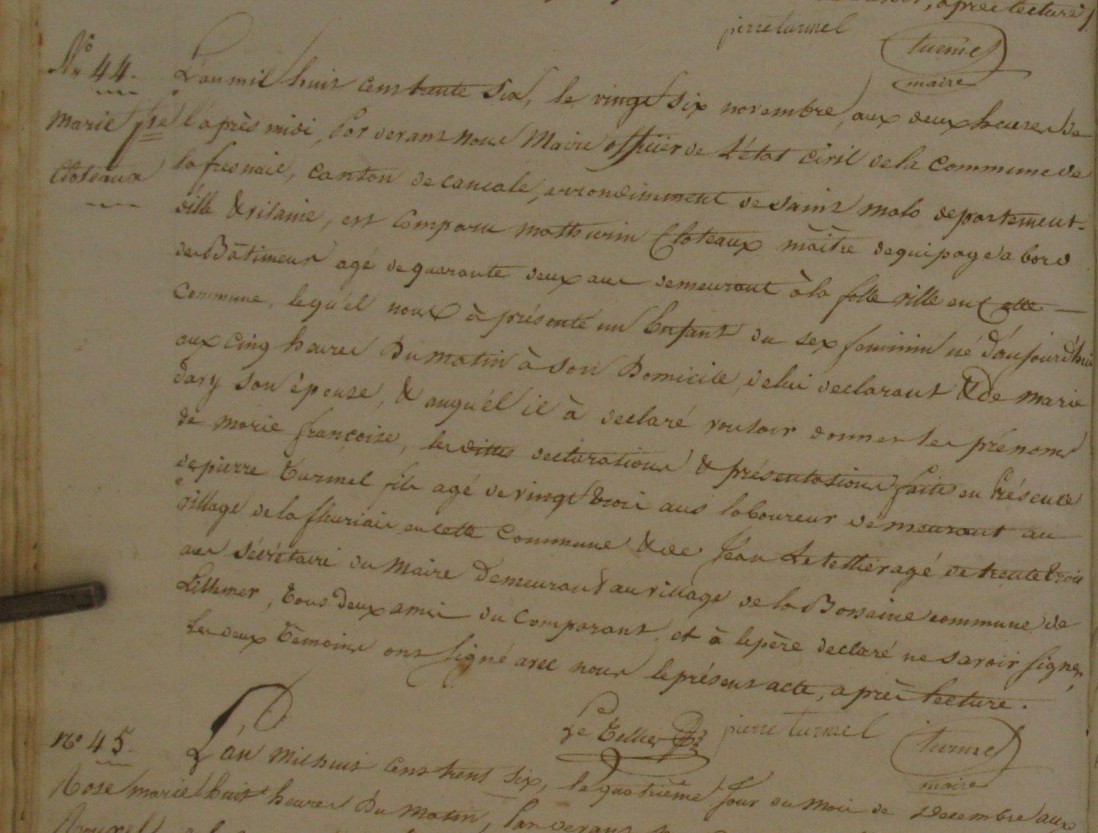 , après lecture /
pierre turmel
turmel
maire
No 44.
marie fse
Cloteaux
L'an mil huit cens trente six, le vingt six novembre, aux deux heures de
l'après midi, Par devant nous Maire officier de L'état civil de la Commune de
la fresnaie, canton de cancale, arrondissement de saint malo departement
d'ille & vilaine, est Comparu mathurin Cloteaux maître dequipage a bord
des Bâtiments agé de quarante deux ans demeurant à la folle ville en Cette
Commune, lequ'el nous à présenté un Enfant du sex feminin né d'aujourd'hui
aux cinq heures Du matin à son Domicile, de lui declarant & de marie
Dary son épouse, & auqu'el il à declaré vouloir donner les prénoms
de marie françoise, les dittes declarations & présentations faites en Présence
de pierre Turmel fils agé de vingt trois ans laboureur demeurant au
village de la fleuriais en cette Commune & de Jean Letellier agé de trente trois
ans Sécrétaire du Maire Demeurant au village de la Bossaine commune de
Lillemer, tous Deux amis du Comparant, et à le père declaré ne savoir signer,
Les deux témoins ont signé avec nous le présent acte, après lecture.
Le Tellier
pierre turmel
turmel
maire
no 45.
Rose marie
L'an mil huit cens trent six, le quatrième Jour du mois de Decembre aux
huit heures Du matin, Par devant